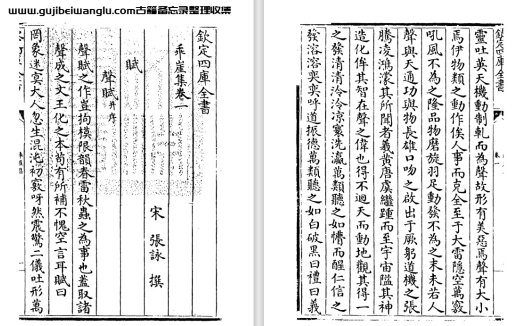 www.gujibeiwanglu.com古籍备忘录整理收集
欽定四庫全書
乖崖集卷一
宋 張詠 撰
賦
聲賦并序
聲賦之作豈拘模限韻春雷秋蟲之為事也蓋取諸
聲成之文王化之本苟有所補不愧空言耳賦曰
罔象迷冥大人忽生混沌初竅呀然震驚二儀吐形萬
欽定四庫全書
靈吐英天機動制軋而為聲故形有美惡焉聲有大小
焉伊物類之動作俟人事而克全至于大雷隱空萬竅
吼風不為之隆品物磨旋羽足動發不為之未若人
聲與天通功與物長雄口吻之啟出于厥躬道機之張
騰凌鴻濛其所聞者羲黄唐虞繼踵而至宇宙隘其神
造化侔其智在聲之偉也得不迴天而動地觀其得一
之發清清泠泠凉寥洗瀛萬類聽之如懵而醒仁信之
發溶溶奕奕呼道振德萬類聽之如白破黑曰禮曰義